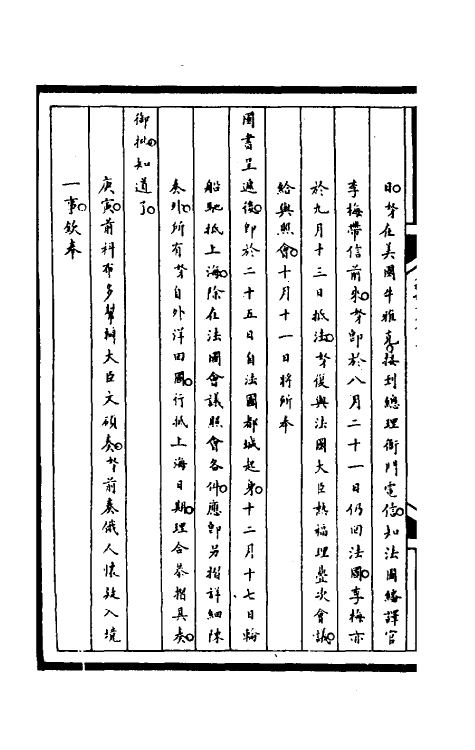 日。李在美國牛雅克接到總理衙門電信。知法國繙譯官
李梅帶信前來。李卽於八月二十一日仍回法國。李梅亦
於九月十三日抵法。李復與法國大臣熱福理疊次會議。
給與照會。十月十一日將所奉
國書呈遞後。卽於二十五日自法國都城起身。十二月十七日輪
船馳抵上海。除在法國會議照會各件。應卽另摺詳細陳
奏外。所有李自外洋回國。行抵上海日期。理合恭摺具奏。
御批。知道了。
庚寅。前科布多幫辦大臣文碩奏。李前奏俄人懷疑入境
一事。欽奉